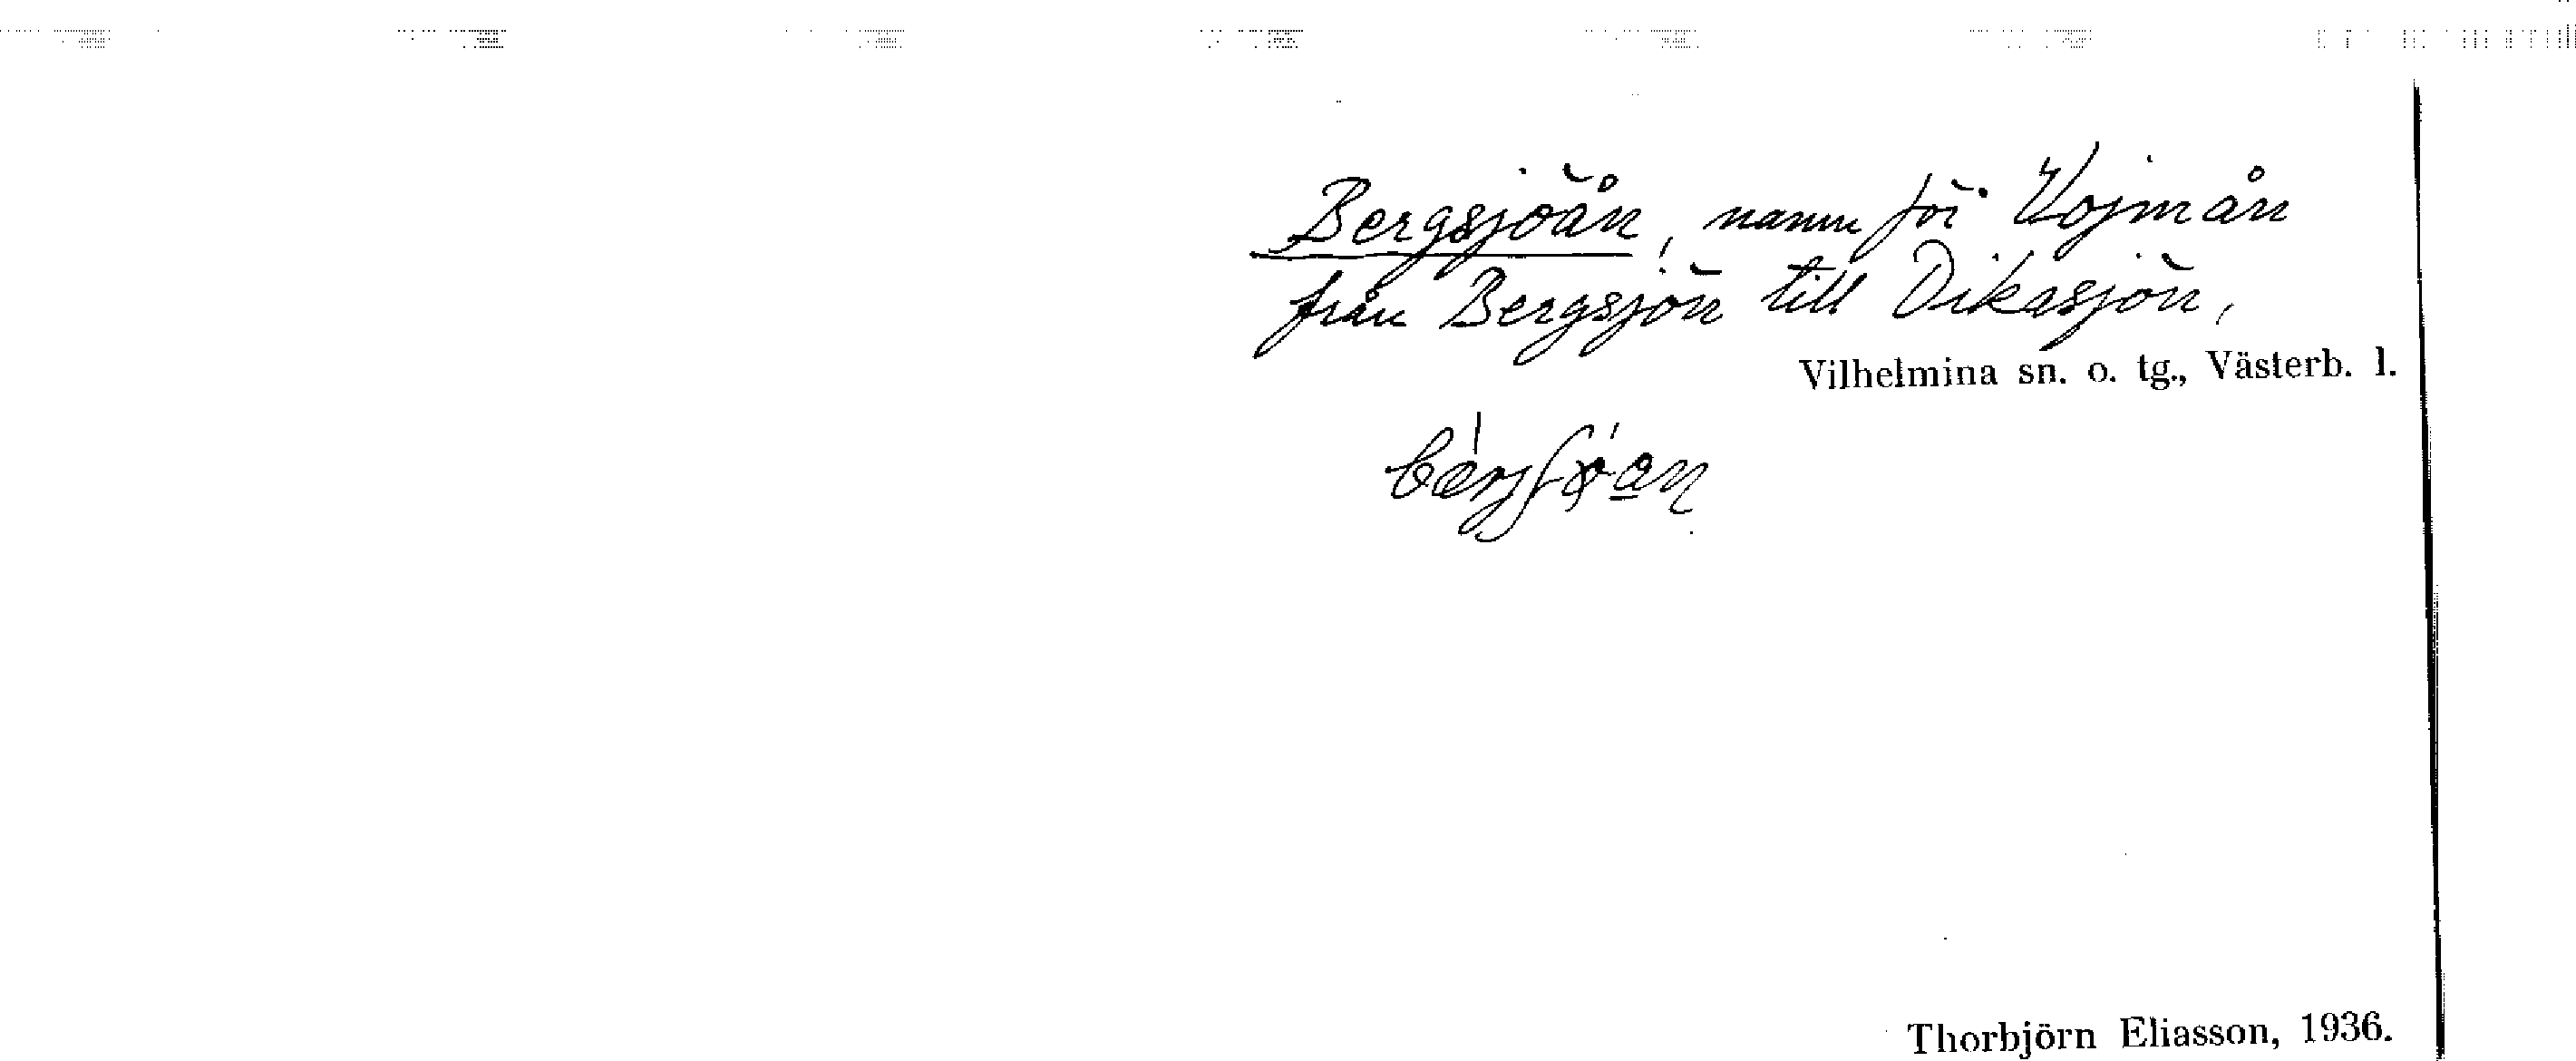 Bergsjöån, namn för Vojmån
från Bergsjön till Dikasjön,
Vilhelmina sn. o. tg., Västerb. l.
Thorbjörn Eliasson, 1936.